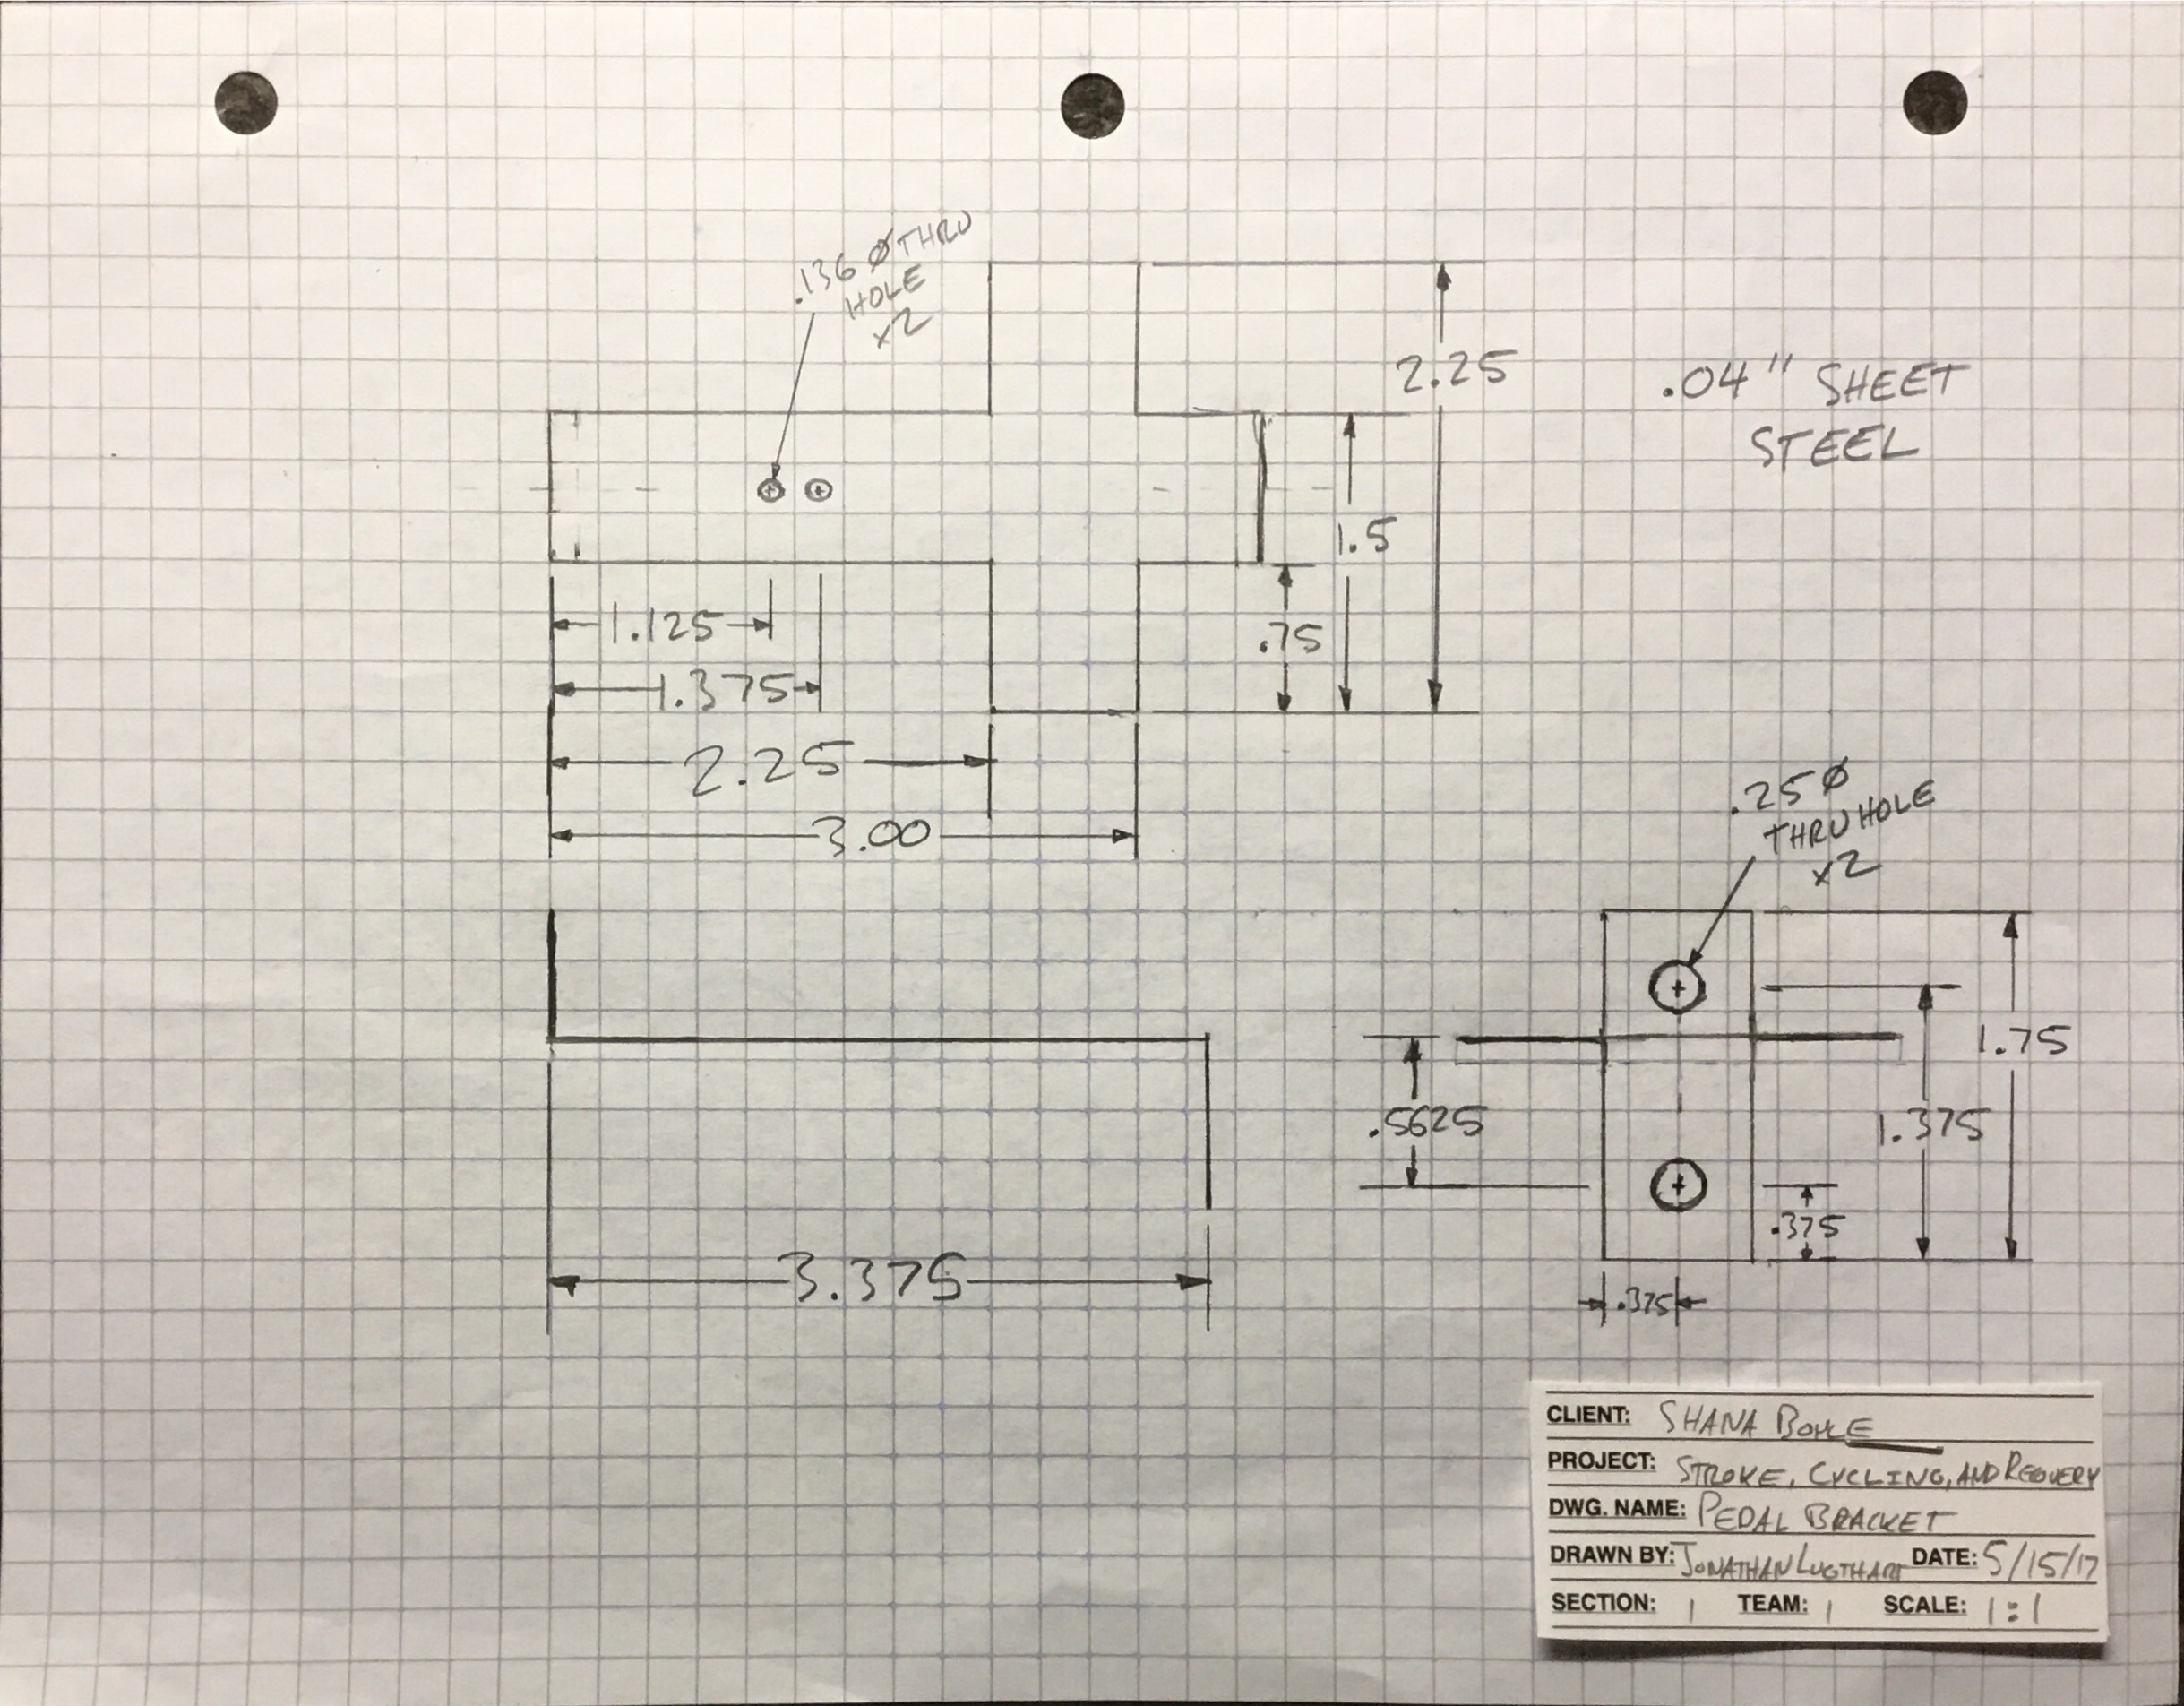 .136 Ø THRU
HOLE
x2
2.25
.04" SHEET
STEEL
1.5
.75
1.125
1.375
2.25
3.00
.25 Ø
THRU HOLE
x2
1.75
.5625
1.375
.375
3.375
.375
CLIENT: SHANA BOYLE
PROJECT: STROKE, CYCLING, AND RECOVERY
DWG. NAME: PEDAL BRACKET
DRAWN BY: JONATHAN LUGTHART DATE: 5/15/17
SECTION: 1 TEAM: 1 SCALE: 1:1